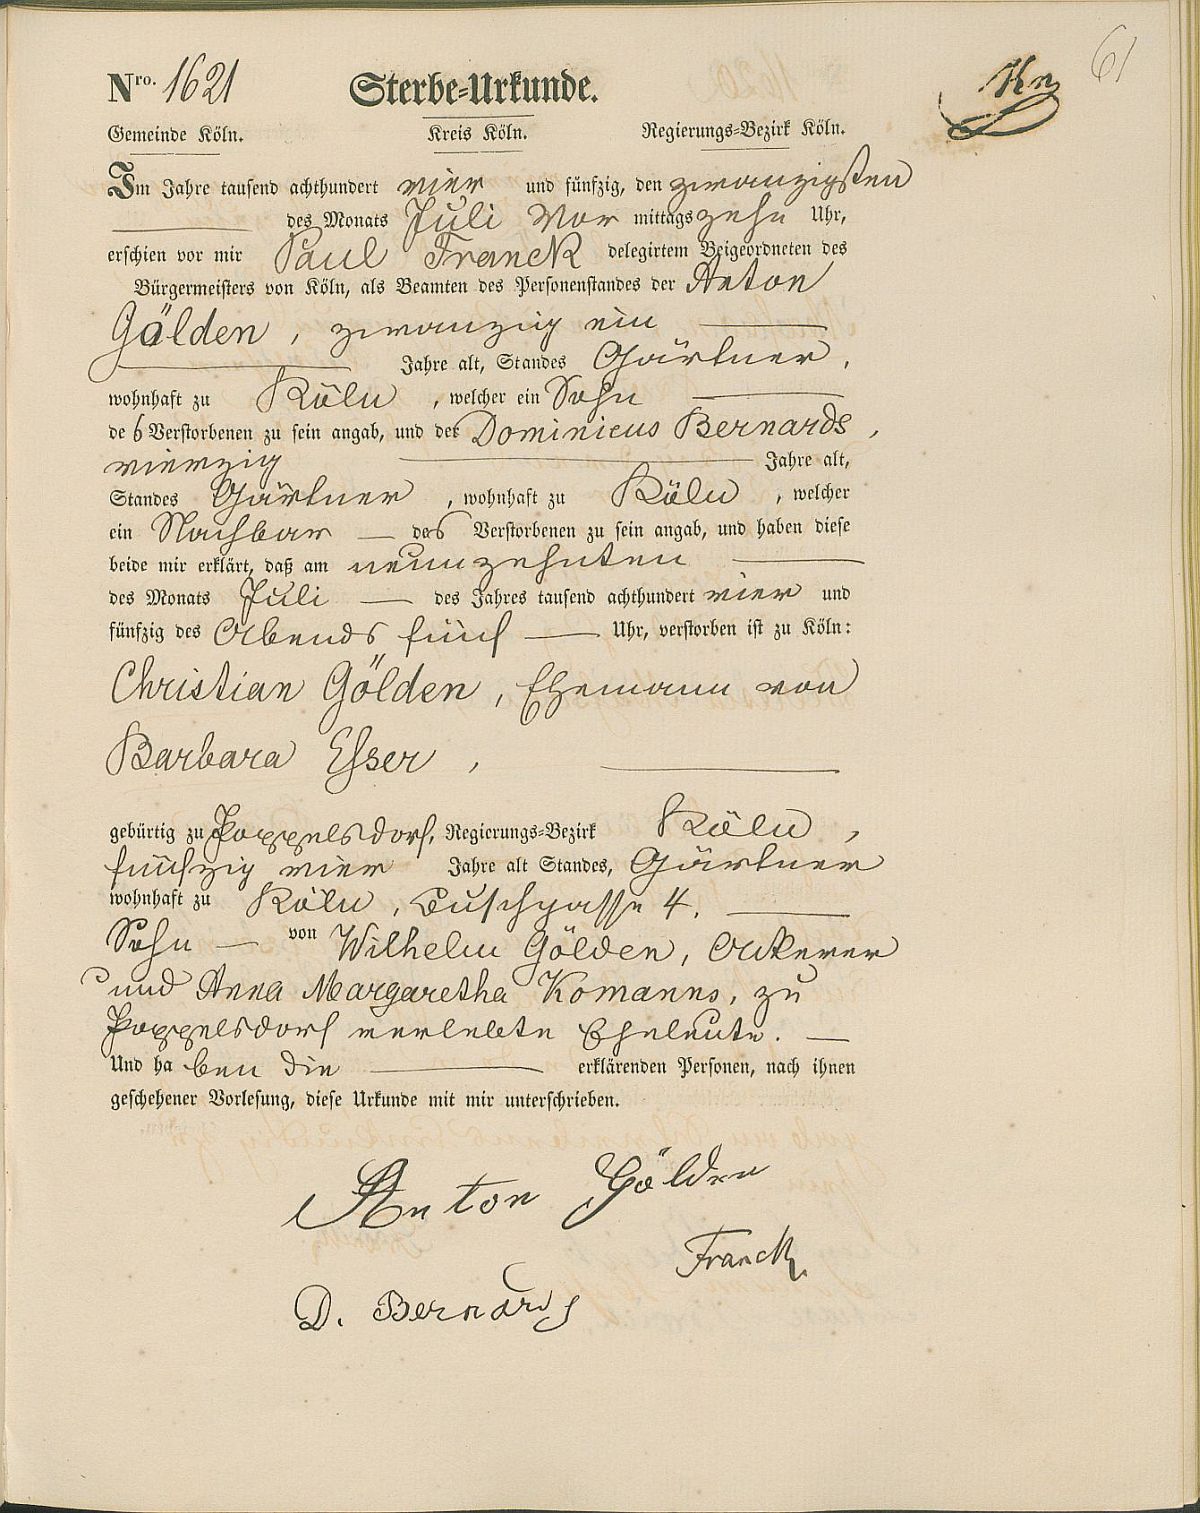 61
Kr
Nro. 1621 Sterbe-Urkunde.
Gemeinde Köln. Kreis Köln. Regierungs-Bezirk Köln.
Im Jahre tausend achthundert vier und fünfzig, den zwanzigsten
des Monats Juli Vor mittags zehn Uhr,
erschien vor mir Paul Franck delegirtem Beigeordneten des
Bürgermeisters von Köln, als Beamten des Personenstandes der Anton
Gölden, zwanzig ein
Jahre alt, Standes Gärtner,
wohnhaft zu Köln, welcher ein Sohn
des Verstorbenen zu sein angab, und der Dominicus Bernards,
vierzig Jahre alt,
Standes Gärtner, wohnhaft zu Köln, welcher
ein Nachbar des Verstorbenen zu sein angab, und haben diese
beide mir erklärt, daß am neunzehnten
des Monats Juli des Jahres tausend achthundert vier und
fünfzig des Abends fünf Uhr, verstorben ist zu Köln:
Christian Gölden, Ehemann von
Barbara Esser,
gebürtig zu Poppelsdorf, Regierungs-Bezirk Köln,
fünfzig vier Jahre alt Standes, Gärtner
wohnhaft zu Köln, Buschgasse 4.
Sohn von Wilhelm Gölden, Ackerer
und Anna Margaretha Komanns, zu
Poppelsdorf verlebte Eheleute.
Und haben die erklärenden Personen, nach ihnen
geschehener Vorlesung, diese Urkunde mit mir unterschrieben.
Anton Gölden
Franck
D. Bernards